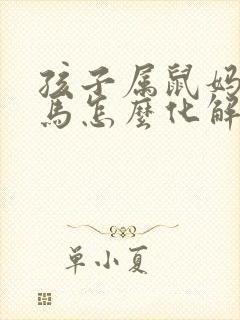 孩子属鼠妈
马怎麽化解
单小夏